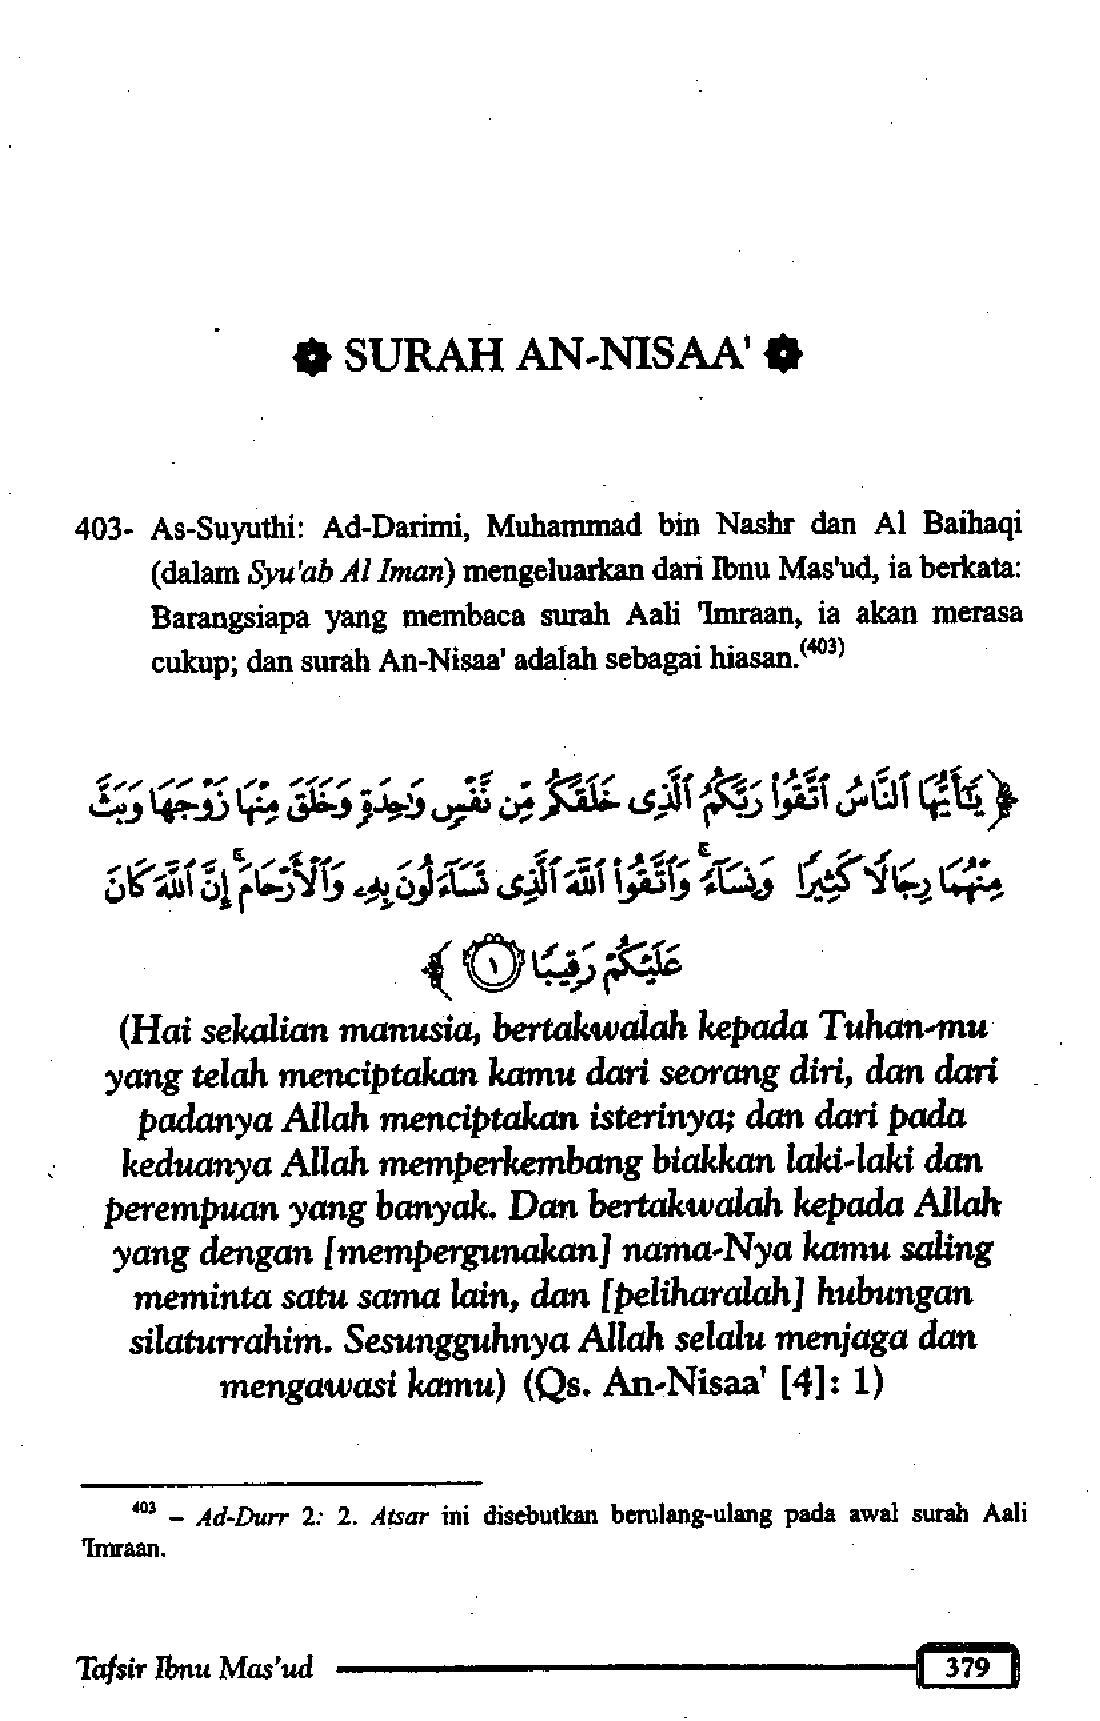 SURAH AN-NISAA'
403- As-Suyuthi: Ad-Darimi, Muhammad bin Nashr dan Al Baihaqi
(dalam Syu'ab Al Iman) mengeluarkan dari Ibnu Mas'ud, ia berkata:
Barangsiapa yang membaca surah Aali 'Imraan, ia akan merasa
cukup; dan surah An-Nisaa' adalah sebagai hiasan.(403)
﴿ يَٰٓأَيُّهَا ٱلنَّاسُ ٱتَّقُوا۟ رَبَّكُمُ ٱلَّذِى خَلَقَكُم مِّن نَّفْسٍ وَٰحِدَةٍ وَخَلَقَ مِنْهَا زَوْجَهَا وَبَثَّ
مِنْهُمَا رِجَالًا كَثِيرًا وَنِسَآءً ۚ وَٱتَّقُوا۟ ٱللَّهَ ٱلَّذِى تَسَآءَلُونَ بِهِۦ وَٱلْأَرْحَامَ ۚ إِنَّ ٱللَّهَ كَانَ
عَلَيْكُمْ رَقِيبًا ١ ﴾
(Hai sekalian manusia, bertakwalah kepada Tuhan-mu
yang telah menciptakan kamu dari seorang diri, dan dari
padanya Allah menciptakan isterinya; dan dari pada
keduanya Allah memperkembang biakkan laki-laki dan
perempuan yang banyak. Dan bertakwalah kepada Allah
yang dengan [mempergunakan] nama-Nya kamu saling
meminta satu sama lain, dan [peliharalah] hubungan
silaturrahim. Sesungguhnya Allah selalu menjaga dan
mengawasi kamu) (Qs. An-Nisaa' [4]: 1)
403 – Ad-Durr 2: 2. Atsar ini disebutkan berulang-ulang pada awal surah Aali
'Imraan.
Tafsir Ibnu Mas'ud 379